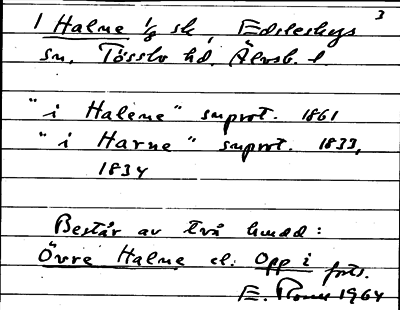 3
1 Halne 1/8 sk, Edsleskogs
sn. Tössbo hd. Älvsb. l.
"i Halene" snprot. 1861
"i Harne" snprot. 1833,
1834
Består av två hmdd:
Övre Halne el. Opp i forts.
E. 1964